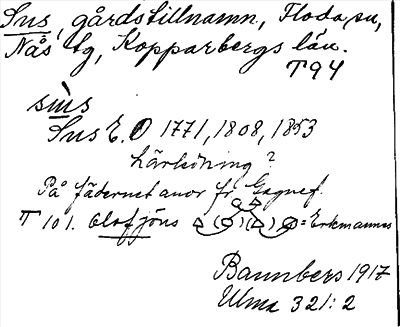 Sus, gårdstillnamn, Floda sn,
Nås tg, Kopparbergs län.
T94
sùs
Sus E. O 1771, 1808, 1853
härledning?
På fädernet anor fr. Gagnef.
T 101. Olofjöns = Erkmannes
Bannbers 1917
Ulma 321:2